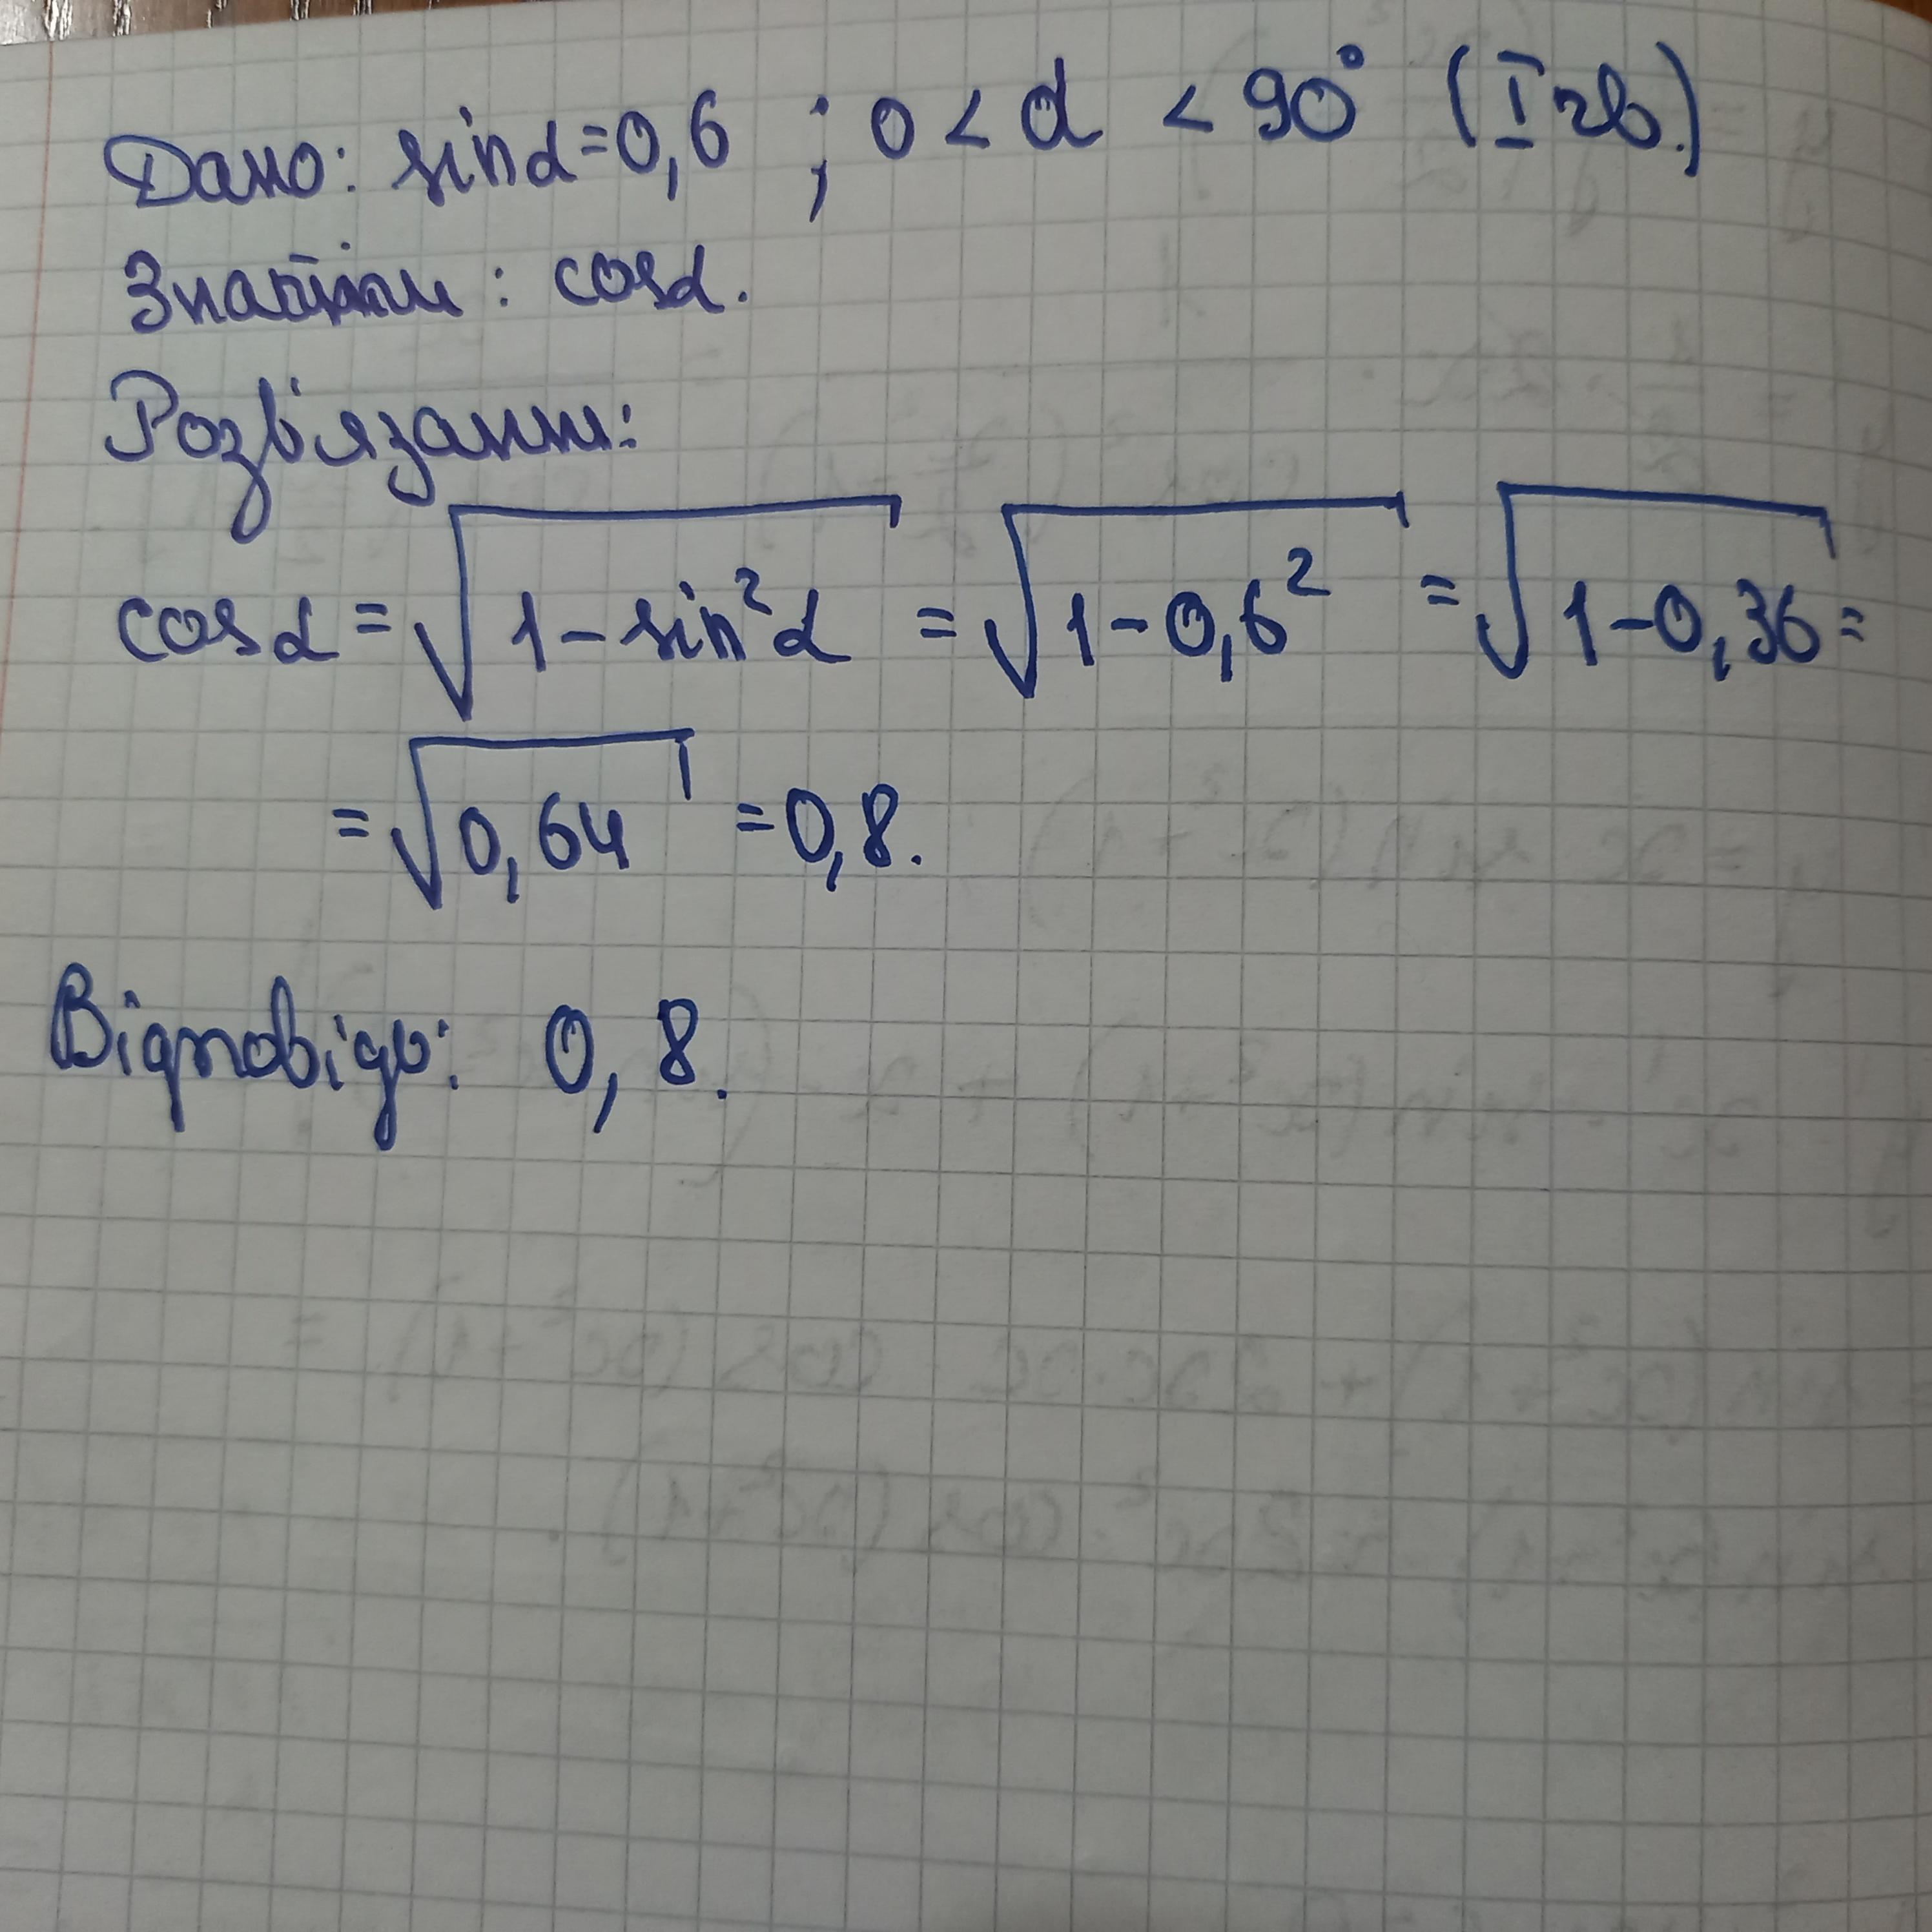 Дано: sinα=0,6 ; 0 < α < 90° (I чв.)
Знайти: cosα.
Розв'язання:
cosα = √1-sin²α = √1-0,6² = √1-0,36 =
= √0,64 = 0,8.
Відповідь: 0,8.